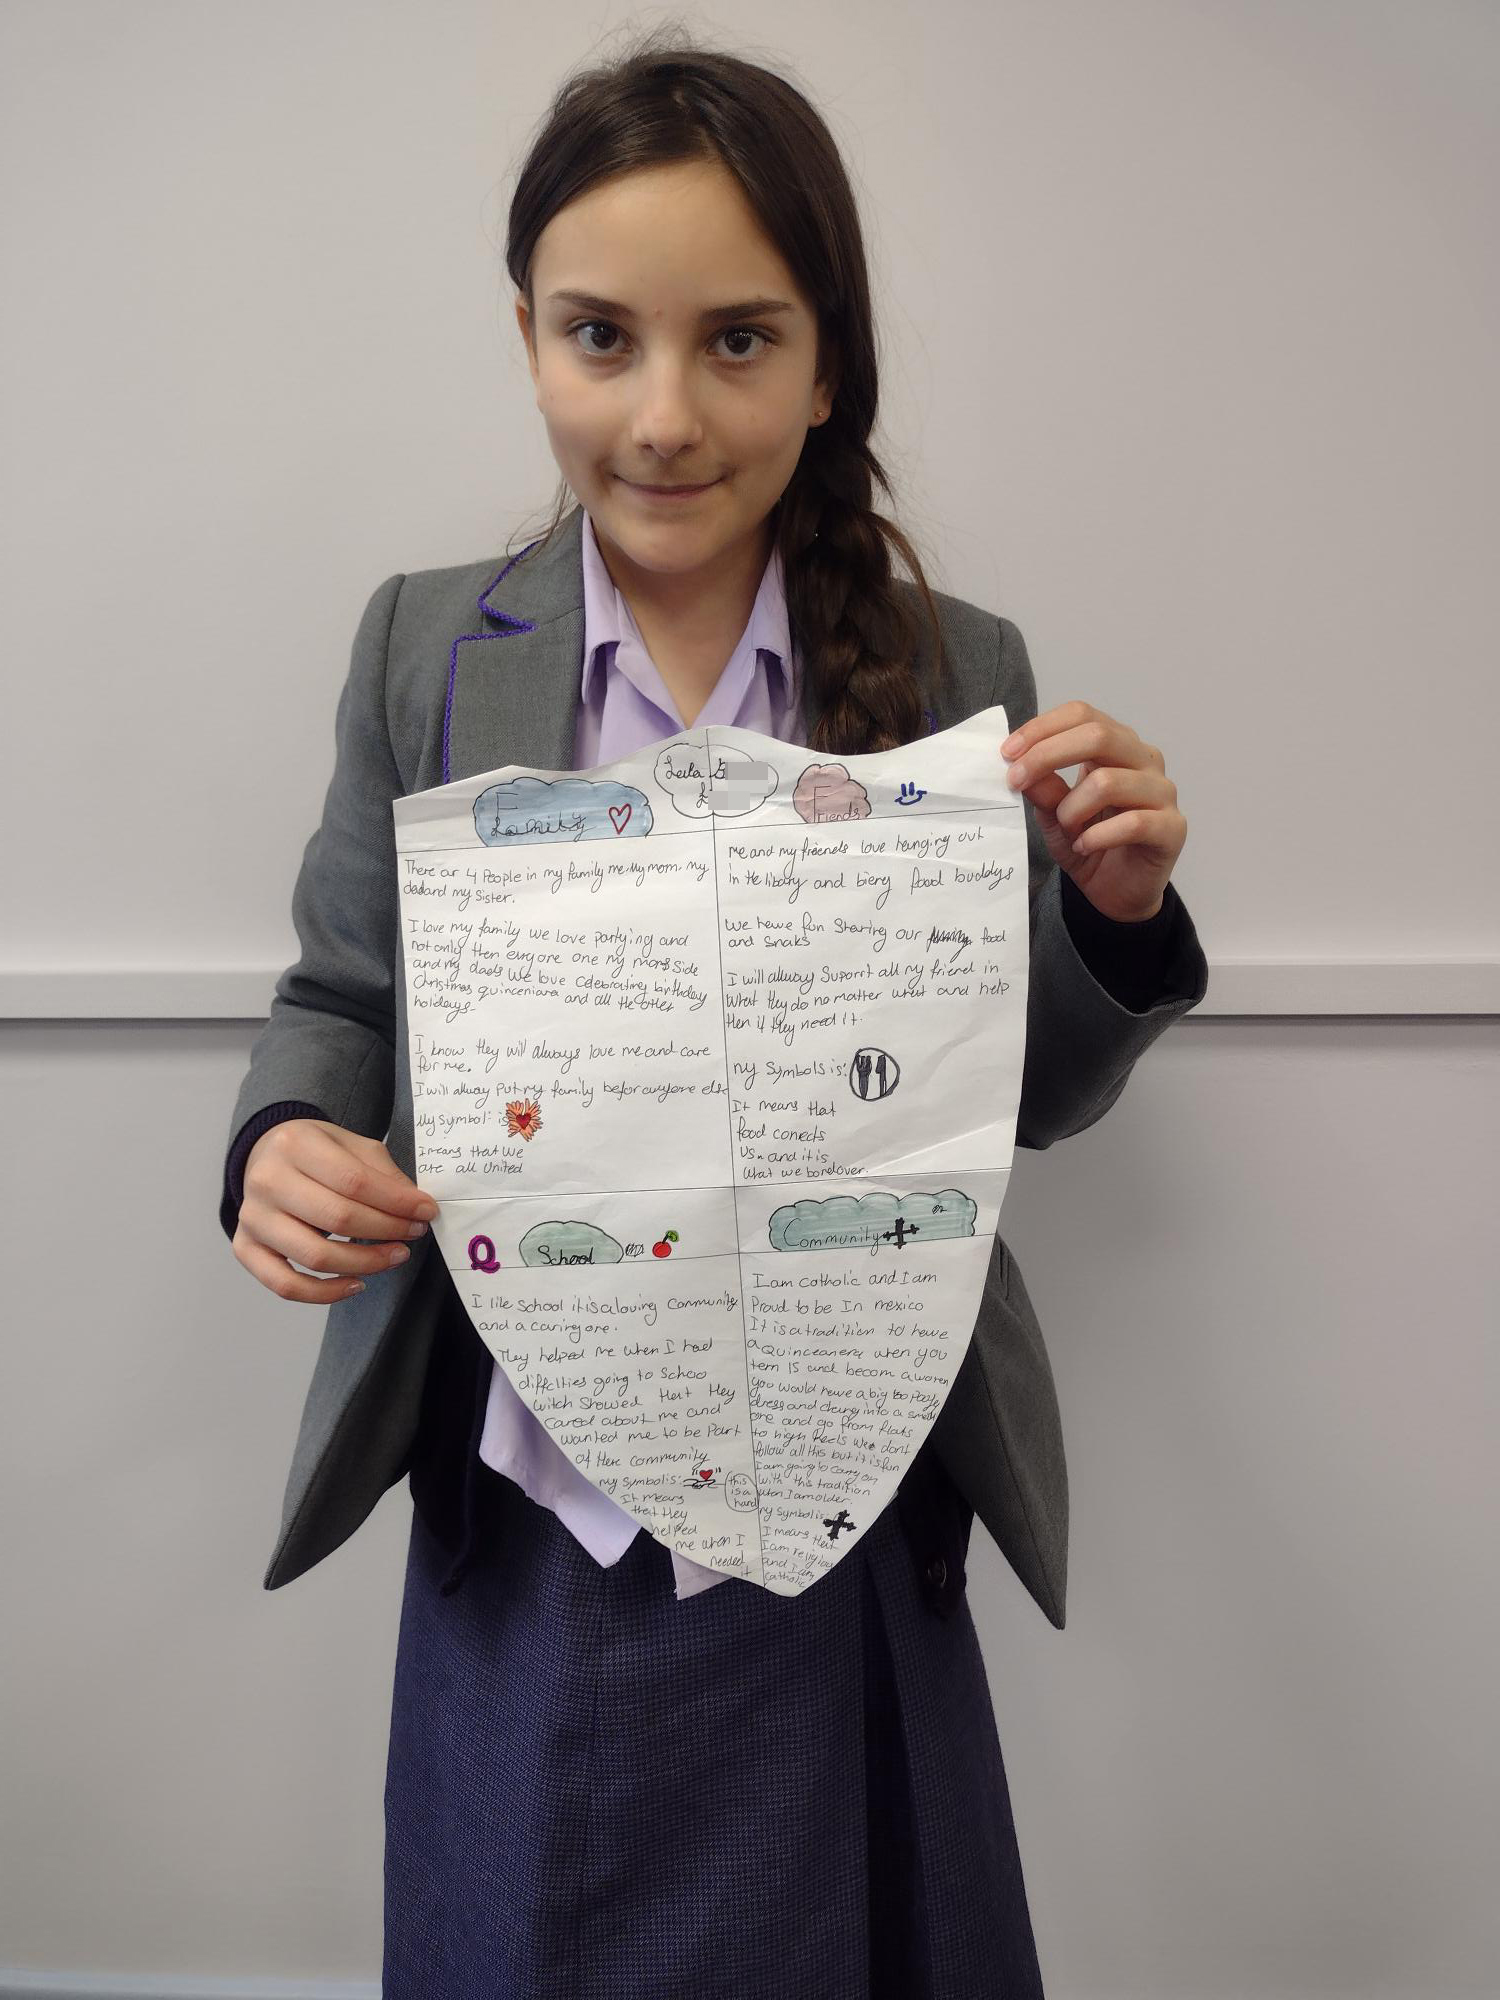 Leila B
L
Family
There ar 4 People in my family me. My mom. my
dad and my Sister.
I love my family we love partying and
not only then eveyone one my moms Side
and my dads We love celebrating birthday
Christmas quinceniara and all the other
holidays.
I know they will always love me and care
for me.
I will allway put my family before anyone else
My Symbol: is
I means that we
are all United
Friends
me and my frieends love hanging out
in the library and bieng food buddys
we have fun Sharing our food
and snaks
I will allway Support all my friend in
what they do no matter what and help
then if they need it.
my Symbols is:
It means that
food conects
us. and it is
what we bond over.
Q School
I like School it is a loving Community
and a caring one.
They helped me when I had
difficlties going to Schoo
witch Showed that they
Cared about me and
wanted me to be Part
of there community
my Symbol is:
this
is a
hand
It means
that they
helped
me when I
needed
it
Community
I am catholic and I am
Proud to be In mexico
It is a tradition to have
a Quinceanera when you
tern 15 and becom a women
you would have a big poofy
dress and chang into a small
one and go from flats
to high heels We dont
follow all this but it is fun
I am going to carry on
with this tradition
when I am older.
my Symbol is:
I means that
I am religiou
and I am
Catholic